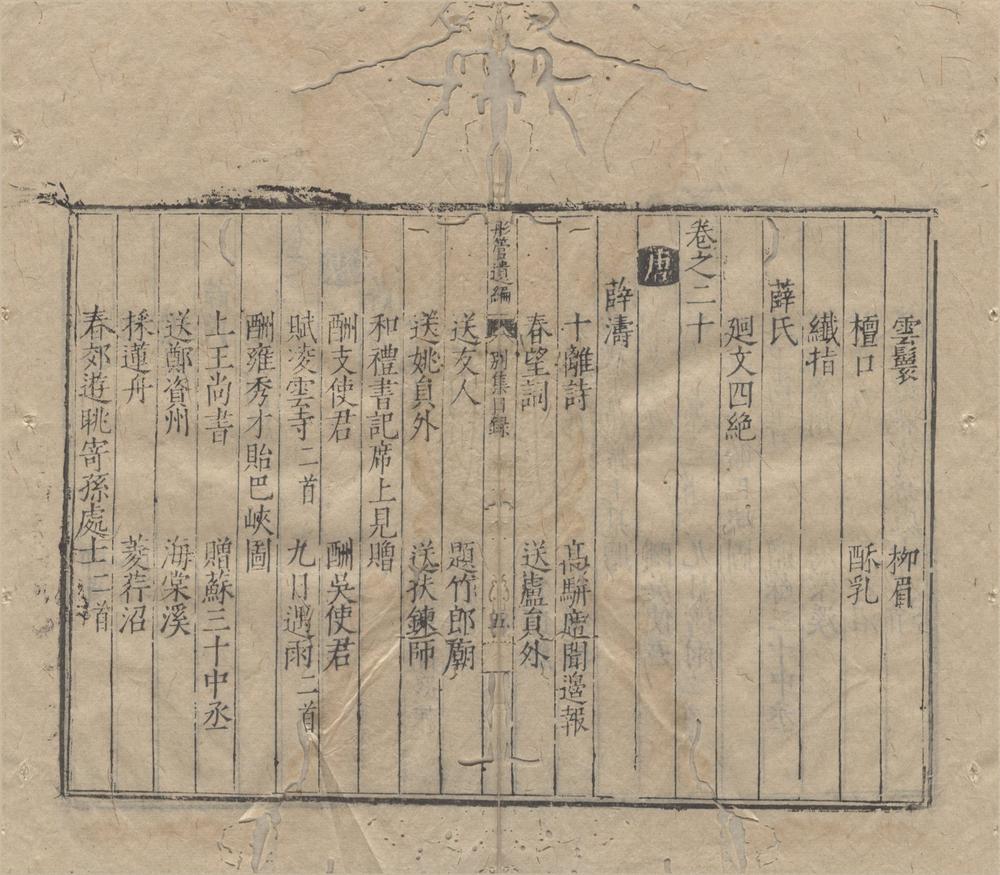 雲鬟　柳眉
檀口　酥乳
纖指
薛氏
廻文四絶
卷之二十
唐
薛濤
十離詩　高駢席聞邊報
春望詞　送盧貟外
彤管遺編　別集目録　五
送友人　題竹郎廟
送姚貟外　送扶鍊師
和禮書記席上見贈
酬支使君　酬吳使君
賦凌雲寺二首　九日遇雨二首
酬雍秀才貽巴峽圖
上王尚書　贈蘇三十中丞
送鄭資州　海棠溪
採蓮舟　菱荇沼
春郊遊眺寄孫處士二首